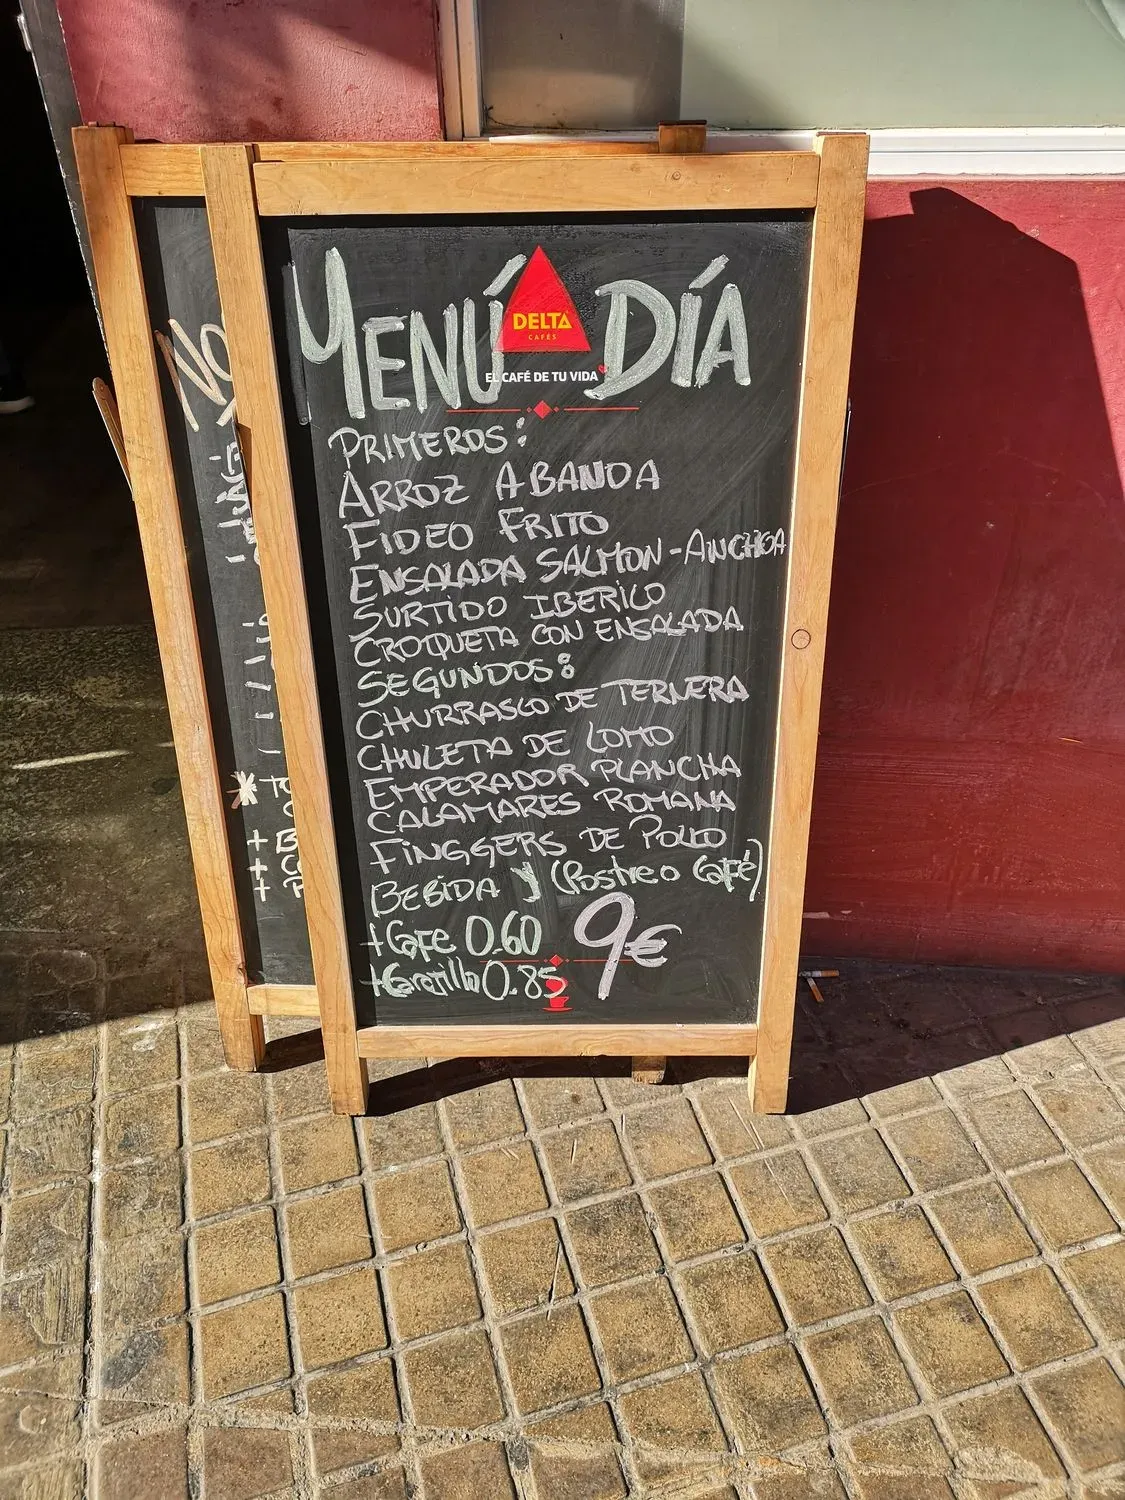 MENÚ DÍA
DELTA
CAFÉS
EL CAFÉ DE TU VIDA
PRIMEROS:
ARROZ A BANDA
FIDEO FRITO
ENSALADA SALMON-ANCHOA
SURTIDO IBERICO
CROQUETA CON ENSALADA
SEGUNDOS:
CHURRASCO DE TERNERA
CHULETA DE LOMO
EMPERADOR PLANCHA
CALAMARES ROMANA
FINGGERS DE POLLO
BEBIDA y (Postre o Café)
+Cafe 0.60 9€
+Carajillo 0.85